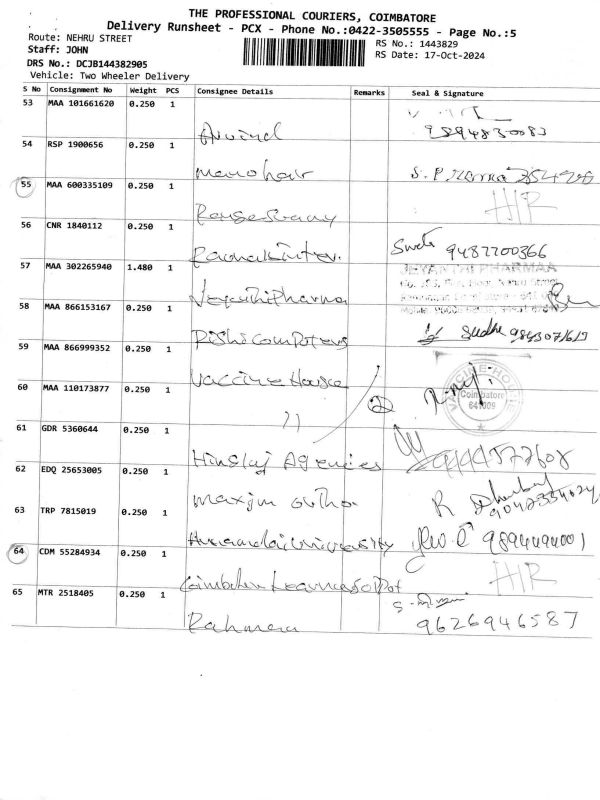 THE PROFESSIONAL COURIERS, COIMBATORE
Delivery Runsheet - PCX - Phone No.:0422-3505555 - Page No.:5
Route: NEHRU STREET
RS No.: 1443829
Staff: JOHN
RS Date: 17-Oct-2024
DRS No.: DCJB144382905
Vehicle: Two Wheeler Delivery
S No Consignment No Weight PCS Consignee Details Remarks Seal & Signature
53 MAA 101661620 0.250 1
Arvind 9894830083
54 RSP 1900656 0.250 1
Manohar S.P.
55 MAA 600335109 0.250 1
H/R
56 CNR 1840112 0.250 1
9487700366
57 MAA 302265940 1.480 1
JEYANTHI PHARMAA
Jeyanthi Pharma
58 MAA 866153167 0.250 1
Rishi Computers Sudha
59 MAA 866999352 0.250 1
Vaccine House
60 MAA 110173877 0.250 1
11 2
VACCINE HOUSE
Coimbatore
641009
61 GDR 5360644 0.250 1
Agencies
62 EDQ 25653005 0.250 1
Maxim R
63 TRP 7815019 0.250 1
University 9894494001
64 CDM 55284934 0.250 1
H/R
65 MTR 2518405 0.250 1
9626946587